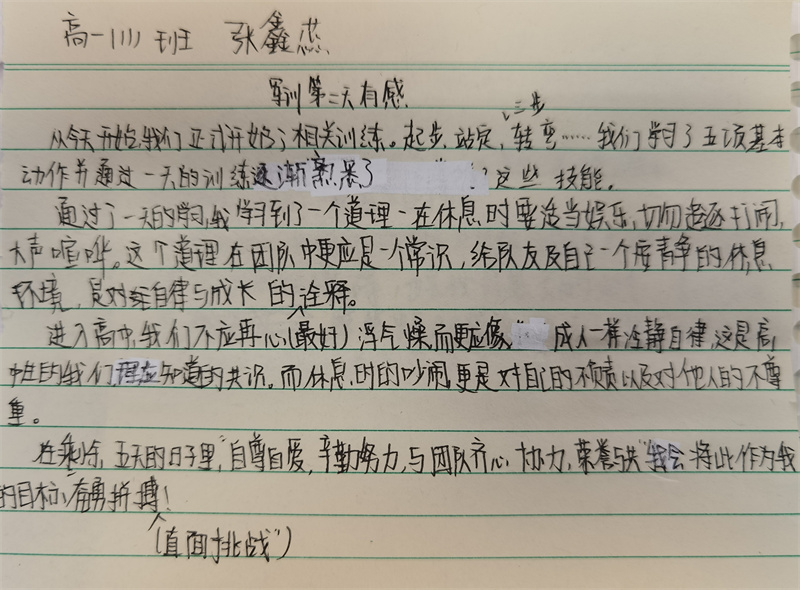 高一(11)班 张鑫蕊
军训第二天有感
、三步
从今天开始,我们正式开始了相关训练。起步、站定、转弯……我们学习了五项基本
动作并通过一天的训练逐渐熟悉了 这些技能。
通过了一天的学习,我学习到了一个道理-在休息时要适当娱乐,切勿追逐打闹,
大声喧哗。这个道理在团队中更应是一个常识,给队友及自己一个安静的休息
环境,是对自律与成长的诠释。
进入高中,我们不应再心(最好)浮气燥,而更应像 成人一样冷静自律,这是高
中生的我们理应知道的共识。而休息时的吵闹,更是对自己的不负责以及对他人的不尊
重。
在剩余五天的日子里,"自尊自爱,辛勤努力,与团队齐心协力,荣誉与共"我会将此作为我
的目标,奋勇拼搏!
(直面挑战")